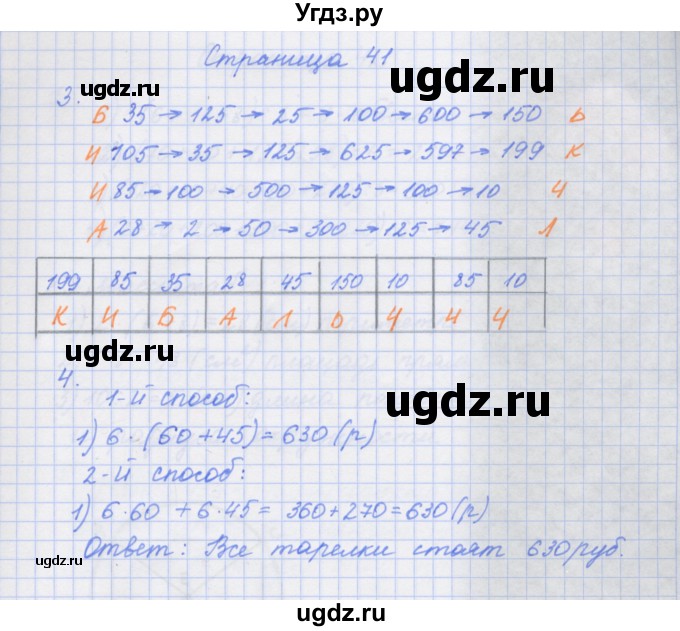 Угдз.ру
Страница 41
ugdz.ru
ugdz.ru
3.
Б 35 → 125 → 25 → 100 → 600 → 150 Ь
И 105 → 35 → 125 → 625 → 597 → 199 К
И 85 → 100 → 500 → 125 → 100 → 10 Ч
А 28 → 2 → 50 → 300 → 125 → 45 Л
199 85 35 28 45 150 10 85 10
К И Б А Л Ь Ч И Ч
ugdz.ru
4.
1-й способ:
ugdz.ru
1) 6 · (60 + 45) = 630 (р)
2-й способ:
1) 6 · 60 + 6 · 45 = 360 + 270 = 630 (р)
Ответ: Все тарелки стоят 630 руб.
ugdz.ru
ugdz.ru
ugdz.ru